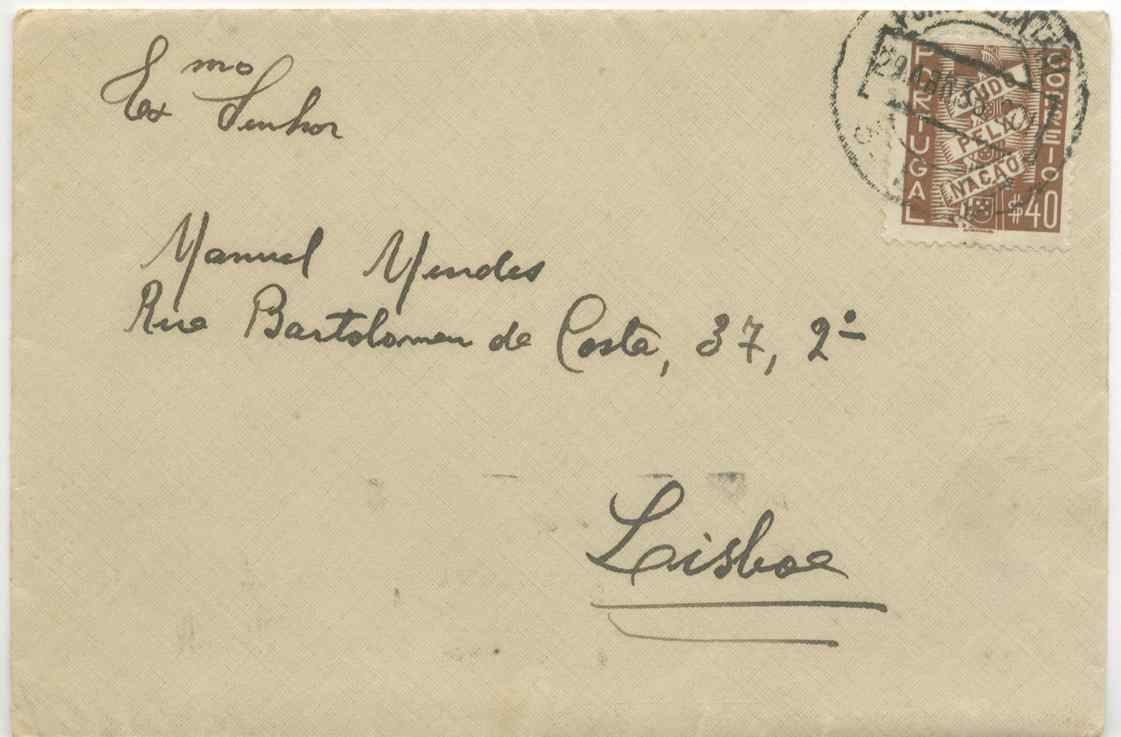 Exmo
Senhor
Manuel Mendes
Rua Bartolomeu de Costa, 37, 2º
Lisboa
PORTUGAL
CORREIO
TUDO
PELA
NAÇÃO
$40